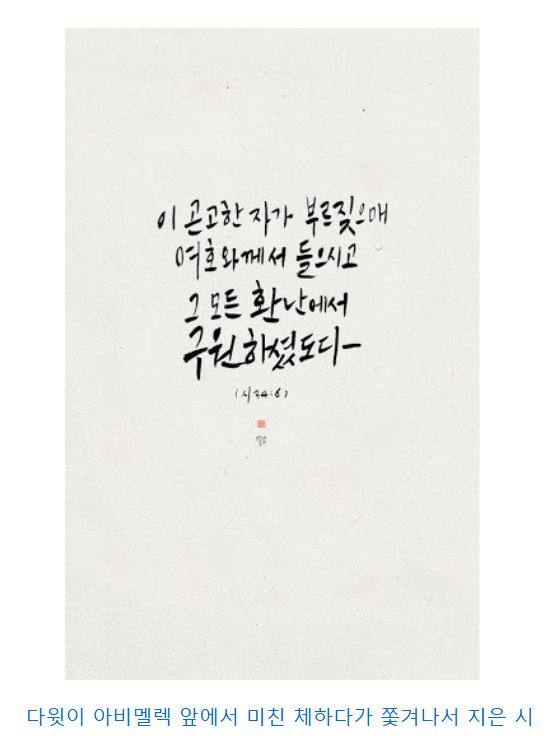 이 곤고한 자가 부르짖으매
여호와께서 들으시고
그 모든 환난에서
구원하셨도다-
(시34:6)
다윗이 아비멜렉 앞에서 미친 체하다가 쫓겨나서 지은 시